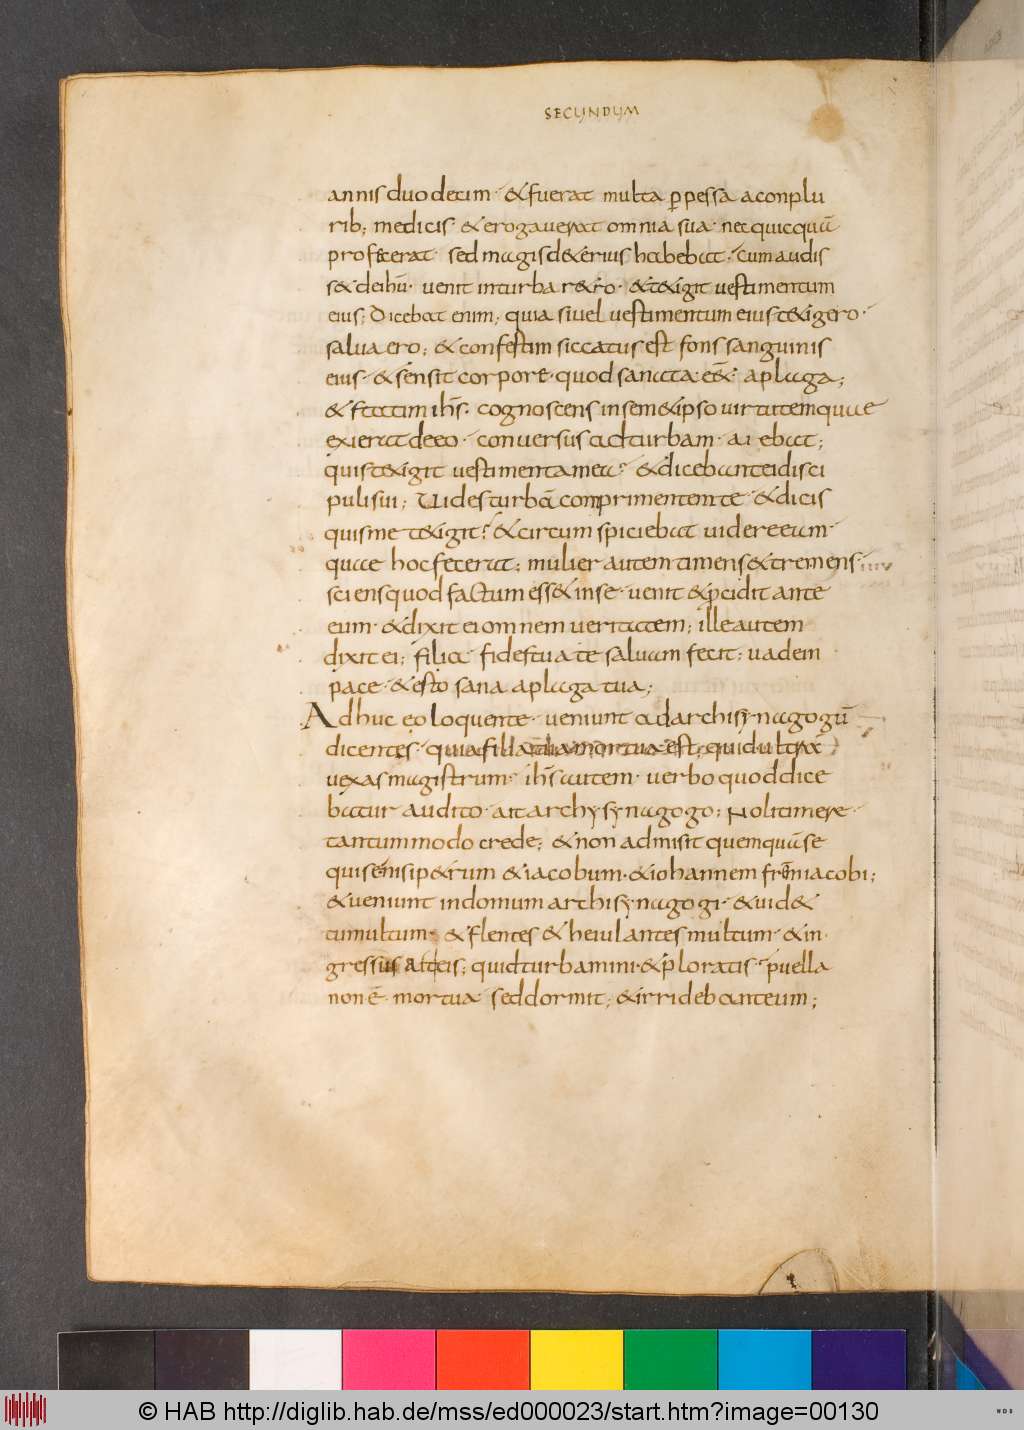 SECUNDUM
annis duodecim · & fuerat multa ꝑpessa a conplu
rib; medicis · & erogauerat omnia sua · nec quicquā
profecerat · sed magis deterius habebat · cum audis
s& de ihū · uenit in turba r&ro · & t&igit uestimentum
eius; Dicebat enim; quia si uel uestimentum eius t&igero ·
salua ero; & confestim siccatus est fons sanguinis
eius · & sensit corpore · quod sanata · e&̄ · a plaga;
& statim ihs̄ · cognoscens in sem&ipso uirtutem quae
exierat de eo · conuersus ad turbam · aiebat;
quis t&igit uestimenta mea? & dicebant ei disci
puli sui; Uides turbā comprimentem te · & dicis
quis me t&igit? & circum spiciebat uidere eam ·
quae hoc fecerat; mulier autem timens & tremens
sciens quod factum ess& in se · uenit & ꝓcidit ante
eum · & dixit ei omnem ueritatem; ille autem
dixit ei; filia fides tua te saluam fecit; uade in
pace · & esto sana a plaga tua;
Adhuc eo loquente · ueniunt ad archisynagogū
dicentes · quia filia tua mortua est; quid ultra
uexas magistrum · ihs̄ autem · uerbo quod dice
batur audito · ait archysynagogo; Noli timere ·
tantummodo crede; & non admisit quemquā se
qui se nisi p&rum & iacobum · & iohannem frēm iacobi;
& ueniunt in domum archisynagogi · & uid&
tumultum · & flentes & heiulantes multum · & in
gressus ait eis; quid turbamini · & ploratis · puella
non ē · mortua sed dormit; & irridebant eum;
© HAB http://diglib.hab.de/mss/ed000023/start.htm?image=00130